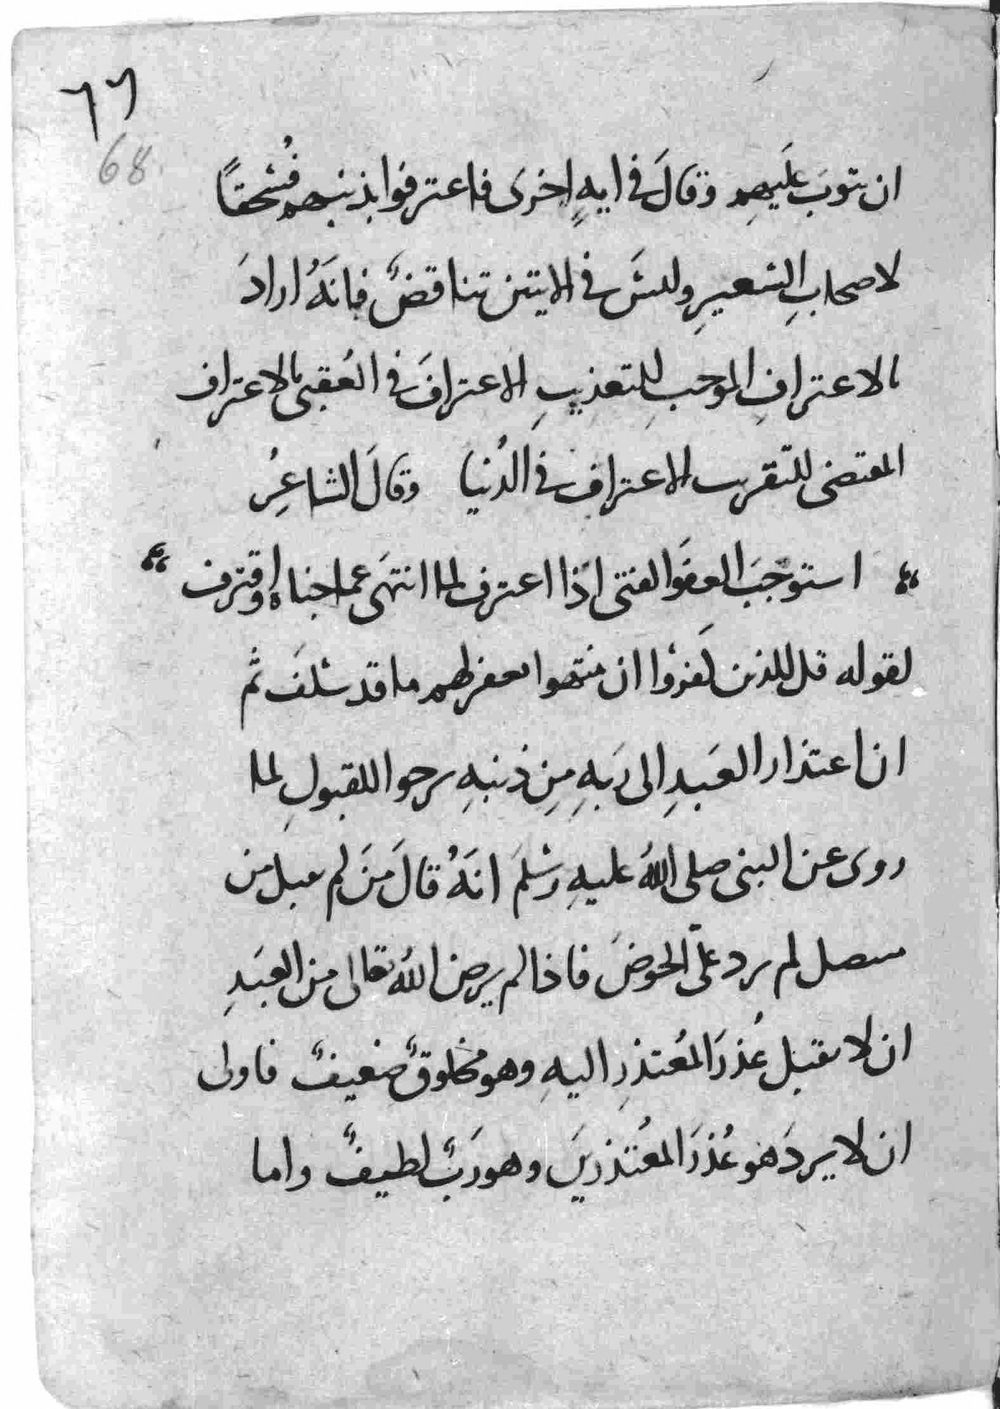 ٦٦
68
ان يتوبَ عليهم وقالَ في ايةٍ اخرى فاعترفوا بذنبهم فسُحقًا
لاصحابِ السعيرِ وليسَ في الايتين تناقضٌ فانهُ ارادَ
بالاعترافِ الموجبِ للتعذيبِ الاعترافَ في العُقبى بالاعتراف
المقتضى للتقريب الاعترافَ في الدُنيا وقالَ الشاعِرُ
استوجَبَ العفوَ الفتى اذا اعترف لما انتهى عما جناه واقترف
لقوله قل للذين كفرُوا ان ينتهوا يغفر لهم ما قد سلفَ ثم
ان اعتذار العَبدِ الى رَبهِ مِن ذنبهِ مرجوا للقبولِ لما
روى عن النبى صلى اللهُ عليهِ وسَلمَ انهُ قالَ مَن لم يقبل من
متنصل لم يرد علىّ الحوضَ فاذا لم يرض اللهُ تعالى من العَبدِ
ان لا يقبل عُذرَ المُعتذرِ اليهِ وهو مخلوقٌ ضعيفٌ فاولى
ان لا يردَ هو عُذرَ المُعتذرينَ وهو رَبٌ لطيفٌ واما